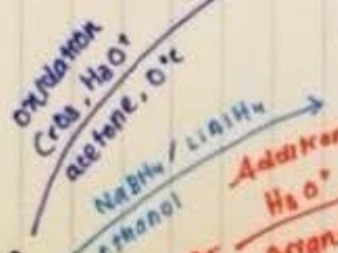 oxidation
CrO3, H3O+
acetone, 0°C
NaBH4 / LiAlH4
ethanol
Addition
H3O+